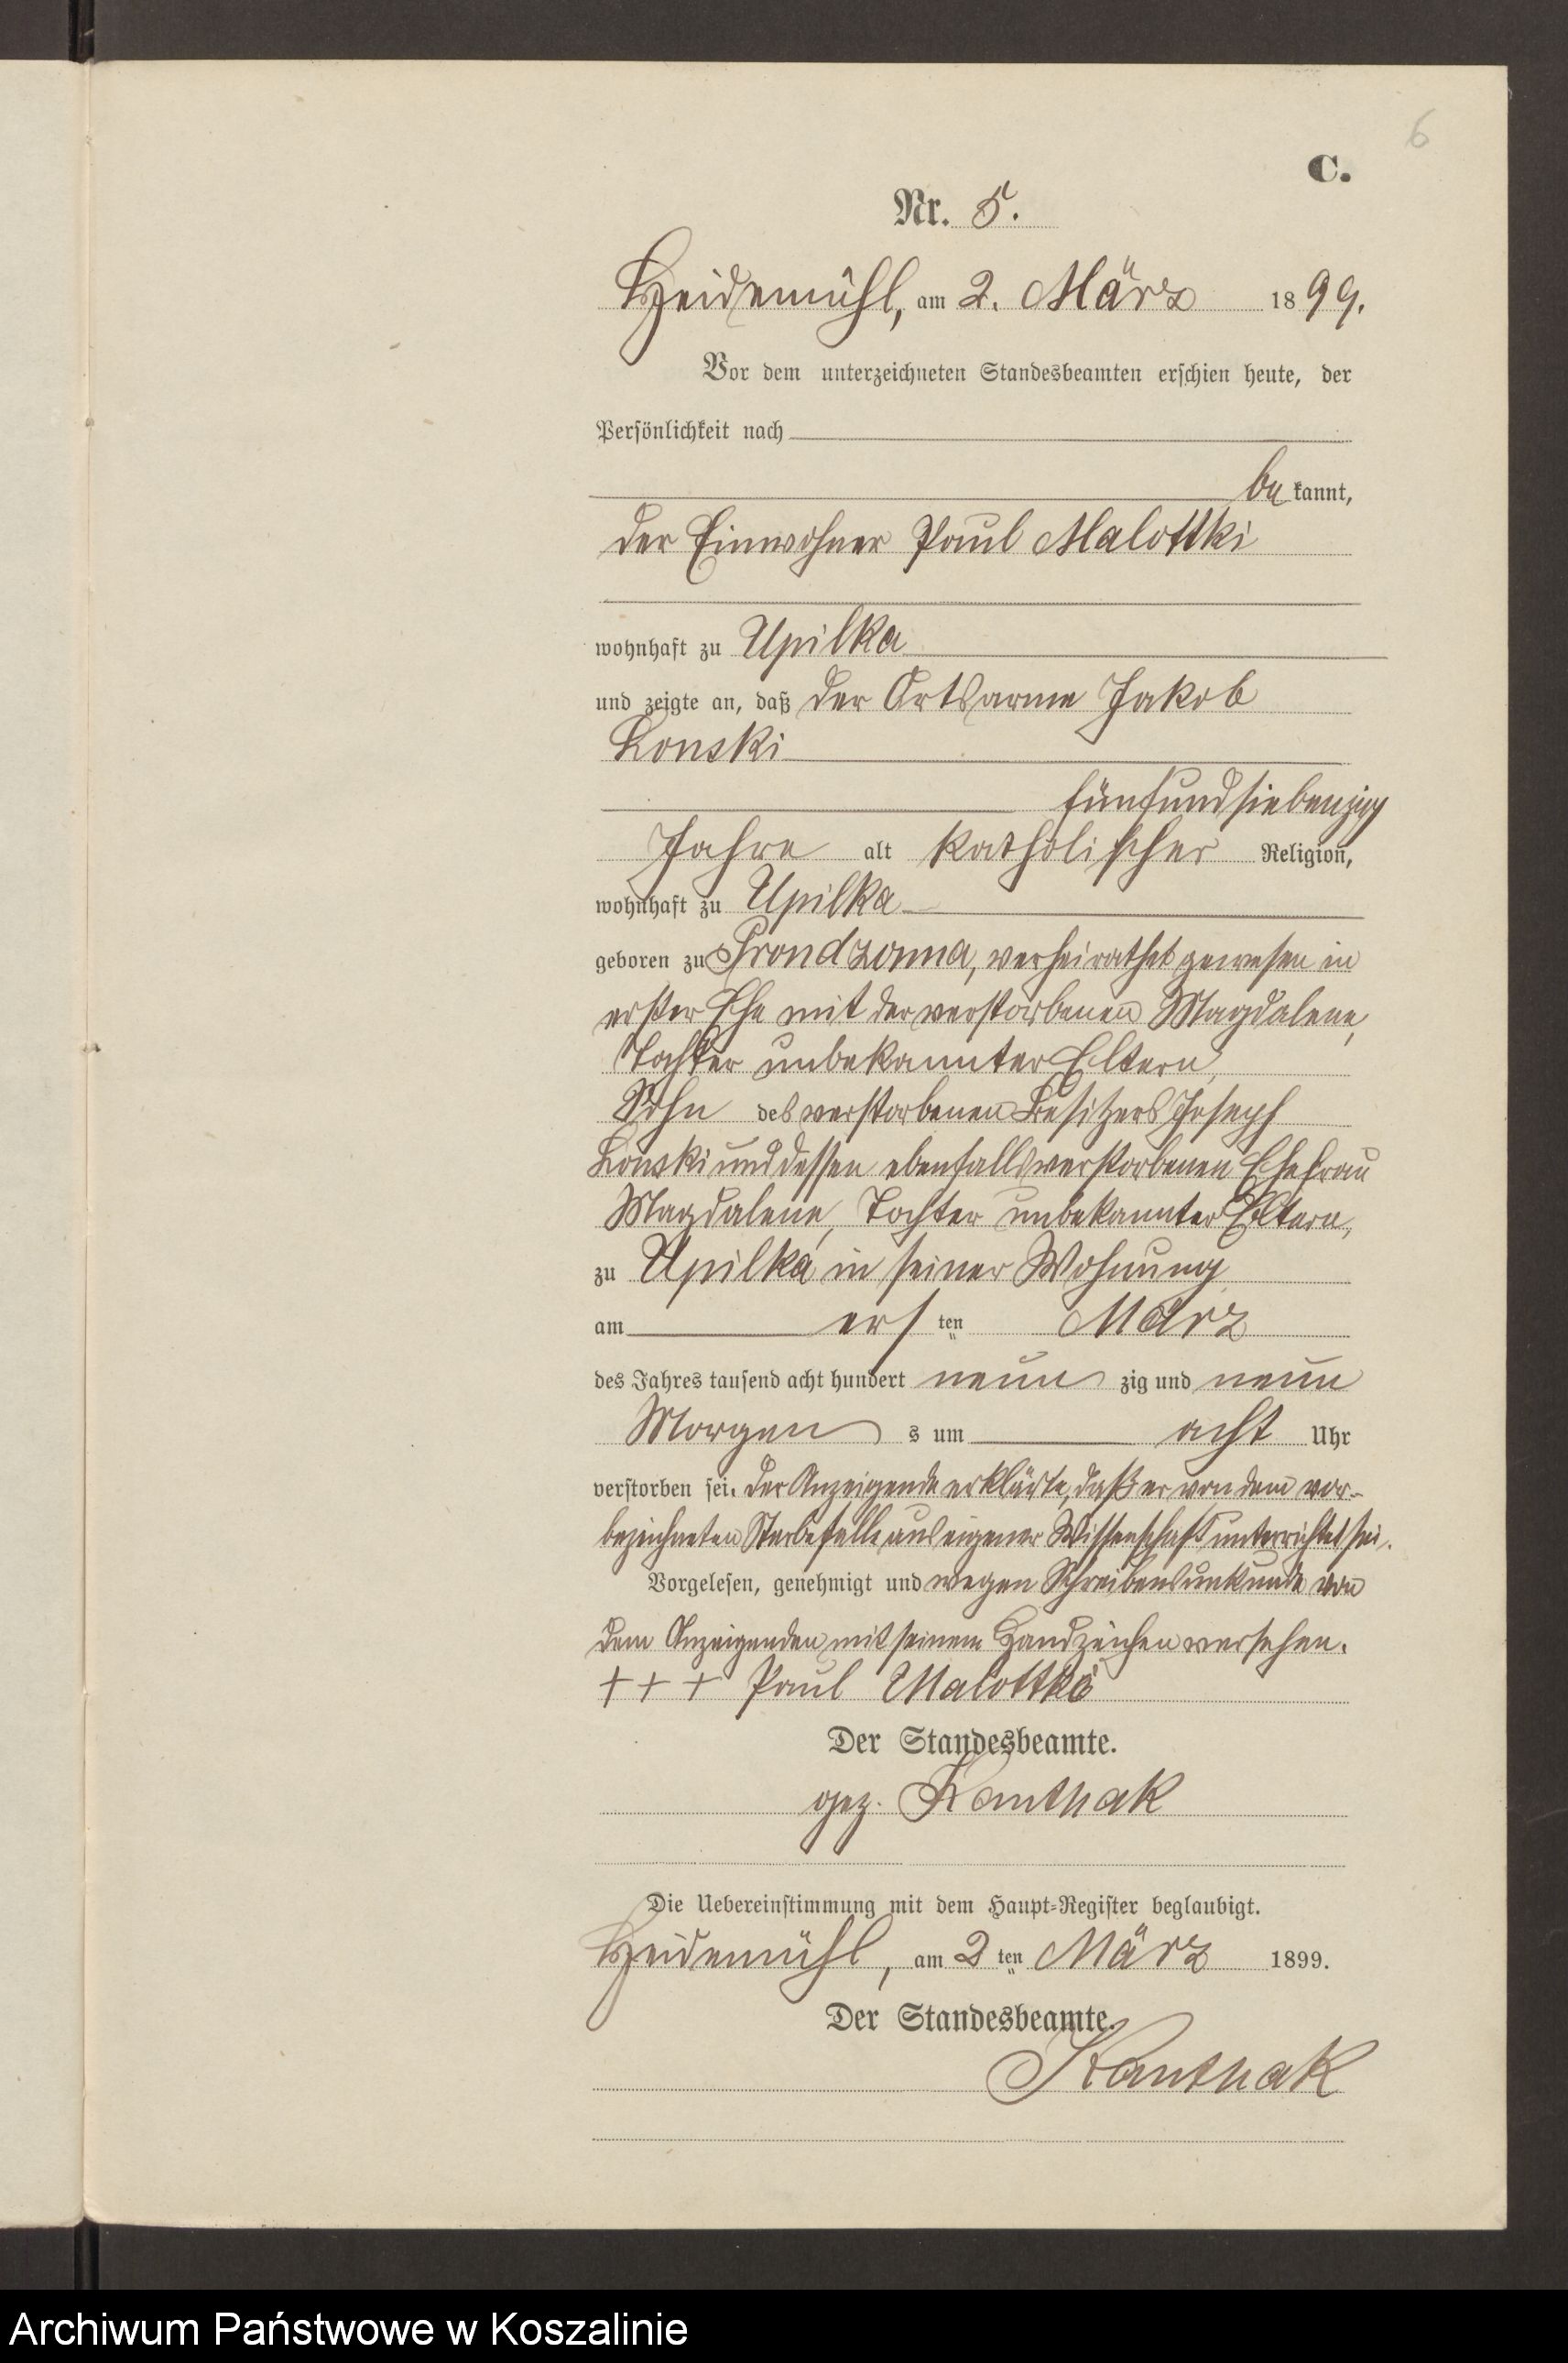 6
C.
Nr. 5.
Heidemühl, am 2. März 1899.
Vor dem unterzeichneten Standesbeamten erschien heute, der
Persönlichkeit nach
be kannt,
der Einwohner Paul Malottki
wohnhaft zu Upilka
und zeigte an, daß der Ortsarme Jakob
Lonski
fünfundsiebenzig
Jahre alt katholischer Religion,
wohnhaft zu Upilka
geboren zu Prondzonna, verheirathet gewesen in
erster Ehe mit der verstorbenen Magdalene,
Tochter unbekannter Eltern,
Sohn des verstorbenen Besitzers Joseph
Lonski und dessen ebenfalls verstorbenen Ehefrau
Magdalene, Tochter unbekannter Eltern,
zu Upilka in seiner Wohnung
am ersten März
des Jahres tausend acht hundert neunzig und neun
Morgens um acht Uhr
verstorben sei. Der Anzeigende erklärte, daß er von dem vor-
bezeichneten Sterbefalle aus eigener Wissenschaft unterrichtet sei.
Vorgelesen, genehmigt und wegen Schreibensunkunde von
dem Anzeigenden mit seinem Handzeichen versehen.
+++ Paul Malottki
Der Standesbeamte.
gez. Kanthak
Die Uebereinstimmung mit dem Haupt-Register beglaubigt.
Heidemühl, am 2ten März 1899.
Der Standesbeamte.
Kanthak
Archiwum Państwowe w Koszalinie